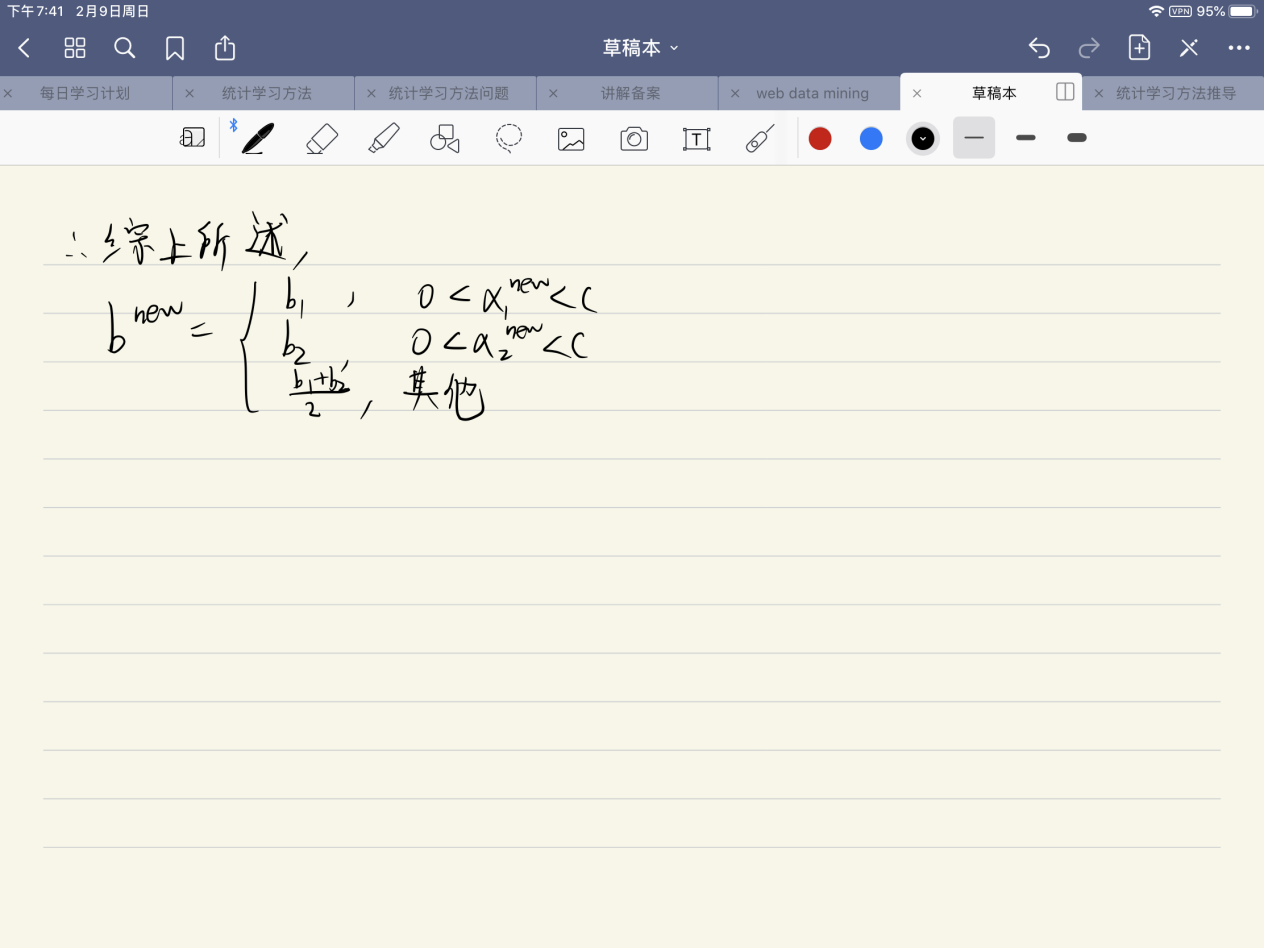 下午7:41 2月9日周日 VPN 95%
草稿本
每日学习计划 统计学习方法 统计学习方法问题 讲解备案 web data mining 草稿本 统计学习方法推导
∴综上所述,
b^new = { b₁ , 0 < α₁^new < C
b₂ , 0 < α₂^new < C
(b₁+b₂)/2 , 其他